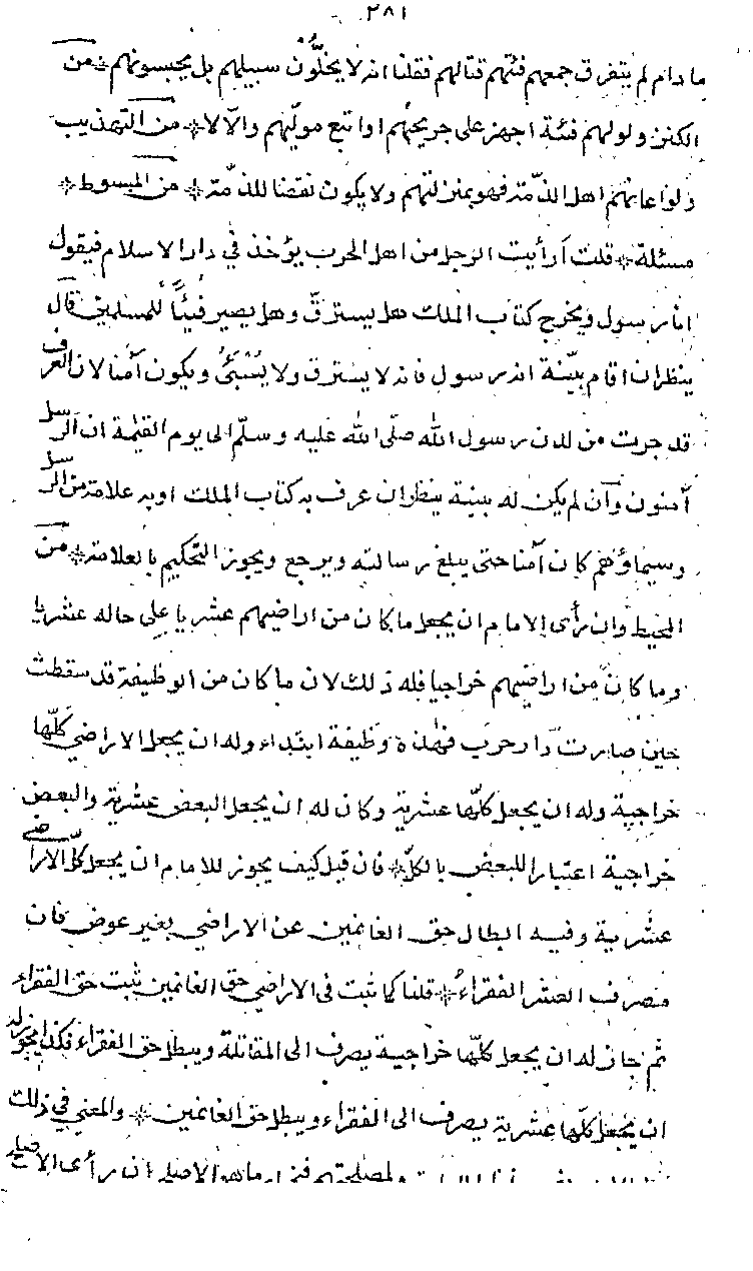 ٢٨١
ما دام لم يتفرق جمعهم فئتهم قتالهم فقلنا انه لا يخلّون سبيلهم بل يحبسونهم * من
الكنز ولو لهم فئة اجهز على جريحهم او اتبع موليهم والا لا * من التهذيب
ولو اعانهم اهل الذمة فهو بمنزلتهم ولا يكون نقضا للذمة * من المبسوط *
مسئلة * قلت أرأيت الرجل من اهل الحرب يؤخذ في دار الاسلام فيقول
انا رسول ويخرج كتاب الملك هل يسترق وهل يصير فيئاً للمسلمين قال
ينظر ان اقام بيّنة انه رسول فانه لا يسترق ولا يستبئ ويكون آمنا لان العرف
قد جرت من لدن رسول الله صلّى الله عليه وسلّم الى يوم القيمة ان الرسل
آمنون وان لم يكن له بينة ينظر ان عرف به كتاب الملك او به علامة من الرسل
وسيماؤهم كان آمنا حتى يبلغ رسالته ويرجع ويجوز التحكيم بالعلامة * من
المحيط وان رأى الامام ان يجعل ما كان من اراضيهم عشريا على حاله عشريا
وما كان من اراضيهم خراجيا فله ذلك لان ما كان من الوظيفة قد سقطت
حين صارت دار حرب فهذه وظيفة ابتداء وله ان يجعل الاراضي كلّها
خراجية وله ان يجعل كلّها عشرية وكان له ان يجعل البعض عشرية والبعض
خراجية اعتبارا للبعض بالكلّ * فان قيل كيف يجوز للامام ان يجعل كلّ الاراضي
عشرية وفيه ابطال حق الغانمين عن الاراضي بغير عوض فان
مصرف العشر الفقراء * قلنا كما ثبت في الاراضي حق الغانمين ثبت حق الفقراء
ثم جاز له ان يجعل كلّها خراجية يصرف الى المقاتلة ويبطل حق الفقراء فكذا يجوز له
ان يجعل كلّها عشرية يصرف الى الفقراء ويبطل حق الغانمين * والمعني في ذلك
ولمصلحتهم ما هو الاصلح ان رأى الاصلح